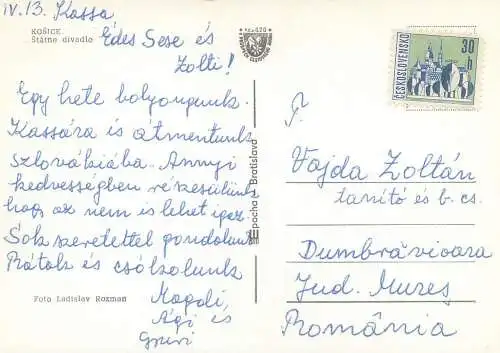 IV. 13. Kassa
KOŠICE
Štátne divadlo
Édes Sese és
Zolti!
Egy hete bolyongunk.
Kassára is átmentünk
Szlovákiába. Annyi
kedvességben részesülünk
hogy az nem is lehet igaz.
Sok szeretettel gondolunk
Rátok és csókolunk
Magdi,
Ági és
Foto Ladislav Roxman
Bratislava
ČESKOSLOVENSKO
30
h
T.
Vajda Zoltán
tanító és b. cs.
Dumbrăvioara
Jud. Mureș
România